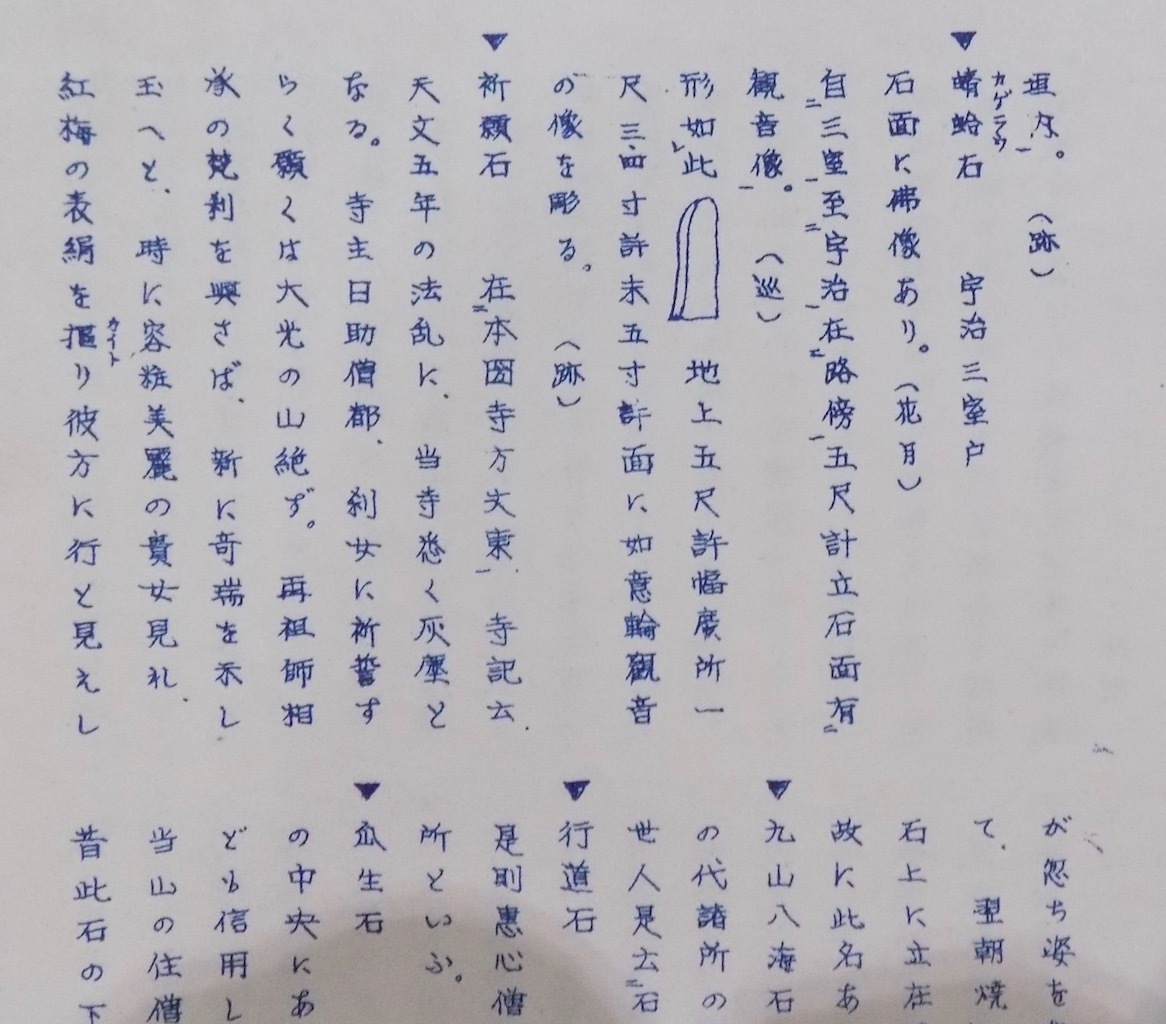 垣内。　（跡）
▼蜻蛉石　　宇治三室戸
カゲラウ
石面に佛像あり。（花月）
自三室至宇治在路傍五尺計立石面有
二　一　二　一　二　一　二
観音像。　（巡）
一
形如此　地上五尺許幅廣所一
レ
尺三四寸許末五寸許面に如意輪観音
の像を彫る。　（跡）
▼祈願石　　在本圀寺方丈東　寺記云
二　一
天文五年の法乱に、当寺悉く灰塵と
なる。寺主日助僧都、刹女に祈誓す
らく願くは大光の山絶ず。再祖師相
承の梵刹を興さば、新に奇瑞を示し
玉へと、時に容粧美麗の貴女見れ、
紅梅の表絹を掻り彼方に行と見えし
カイト
が忽ち姿を
て、翌朝焼
石上に立在
故に此名あ
▼九山八海石
の代諸所の
世人是云石
二
▼行道石
是則恵心僧
所といふ。
▼瓜生石
の中央にあ
ども信用し
当山の住僧
昔此石の下